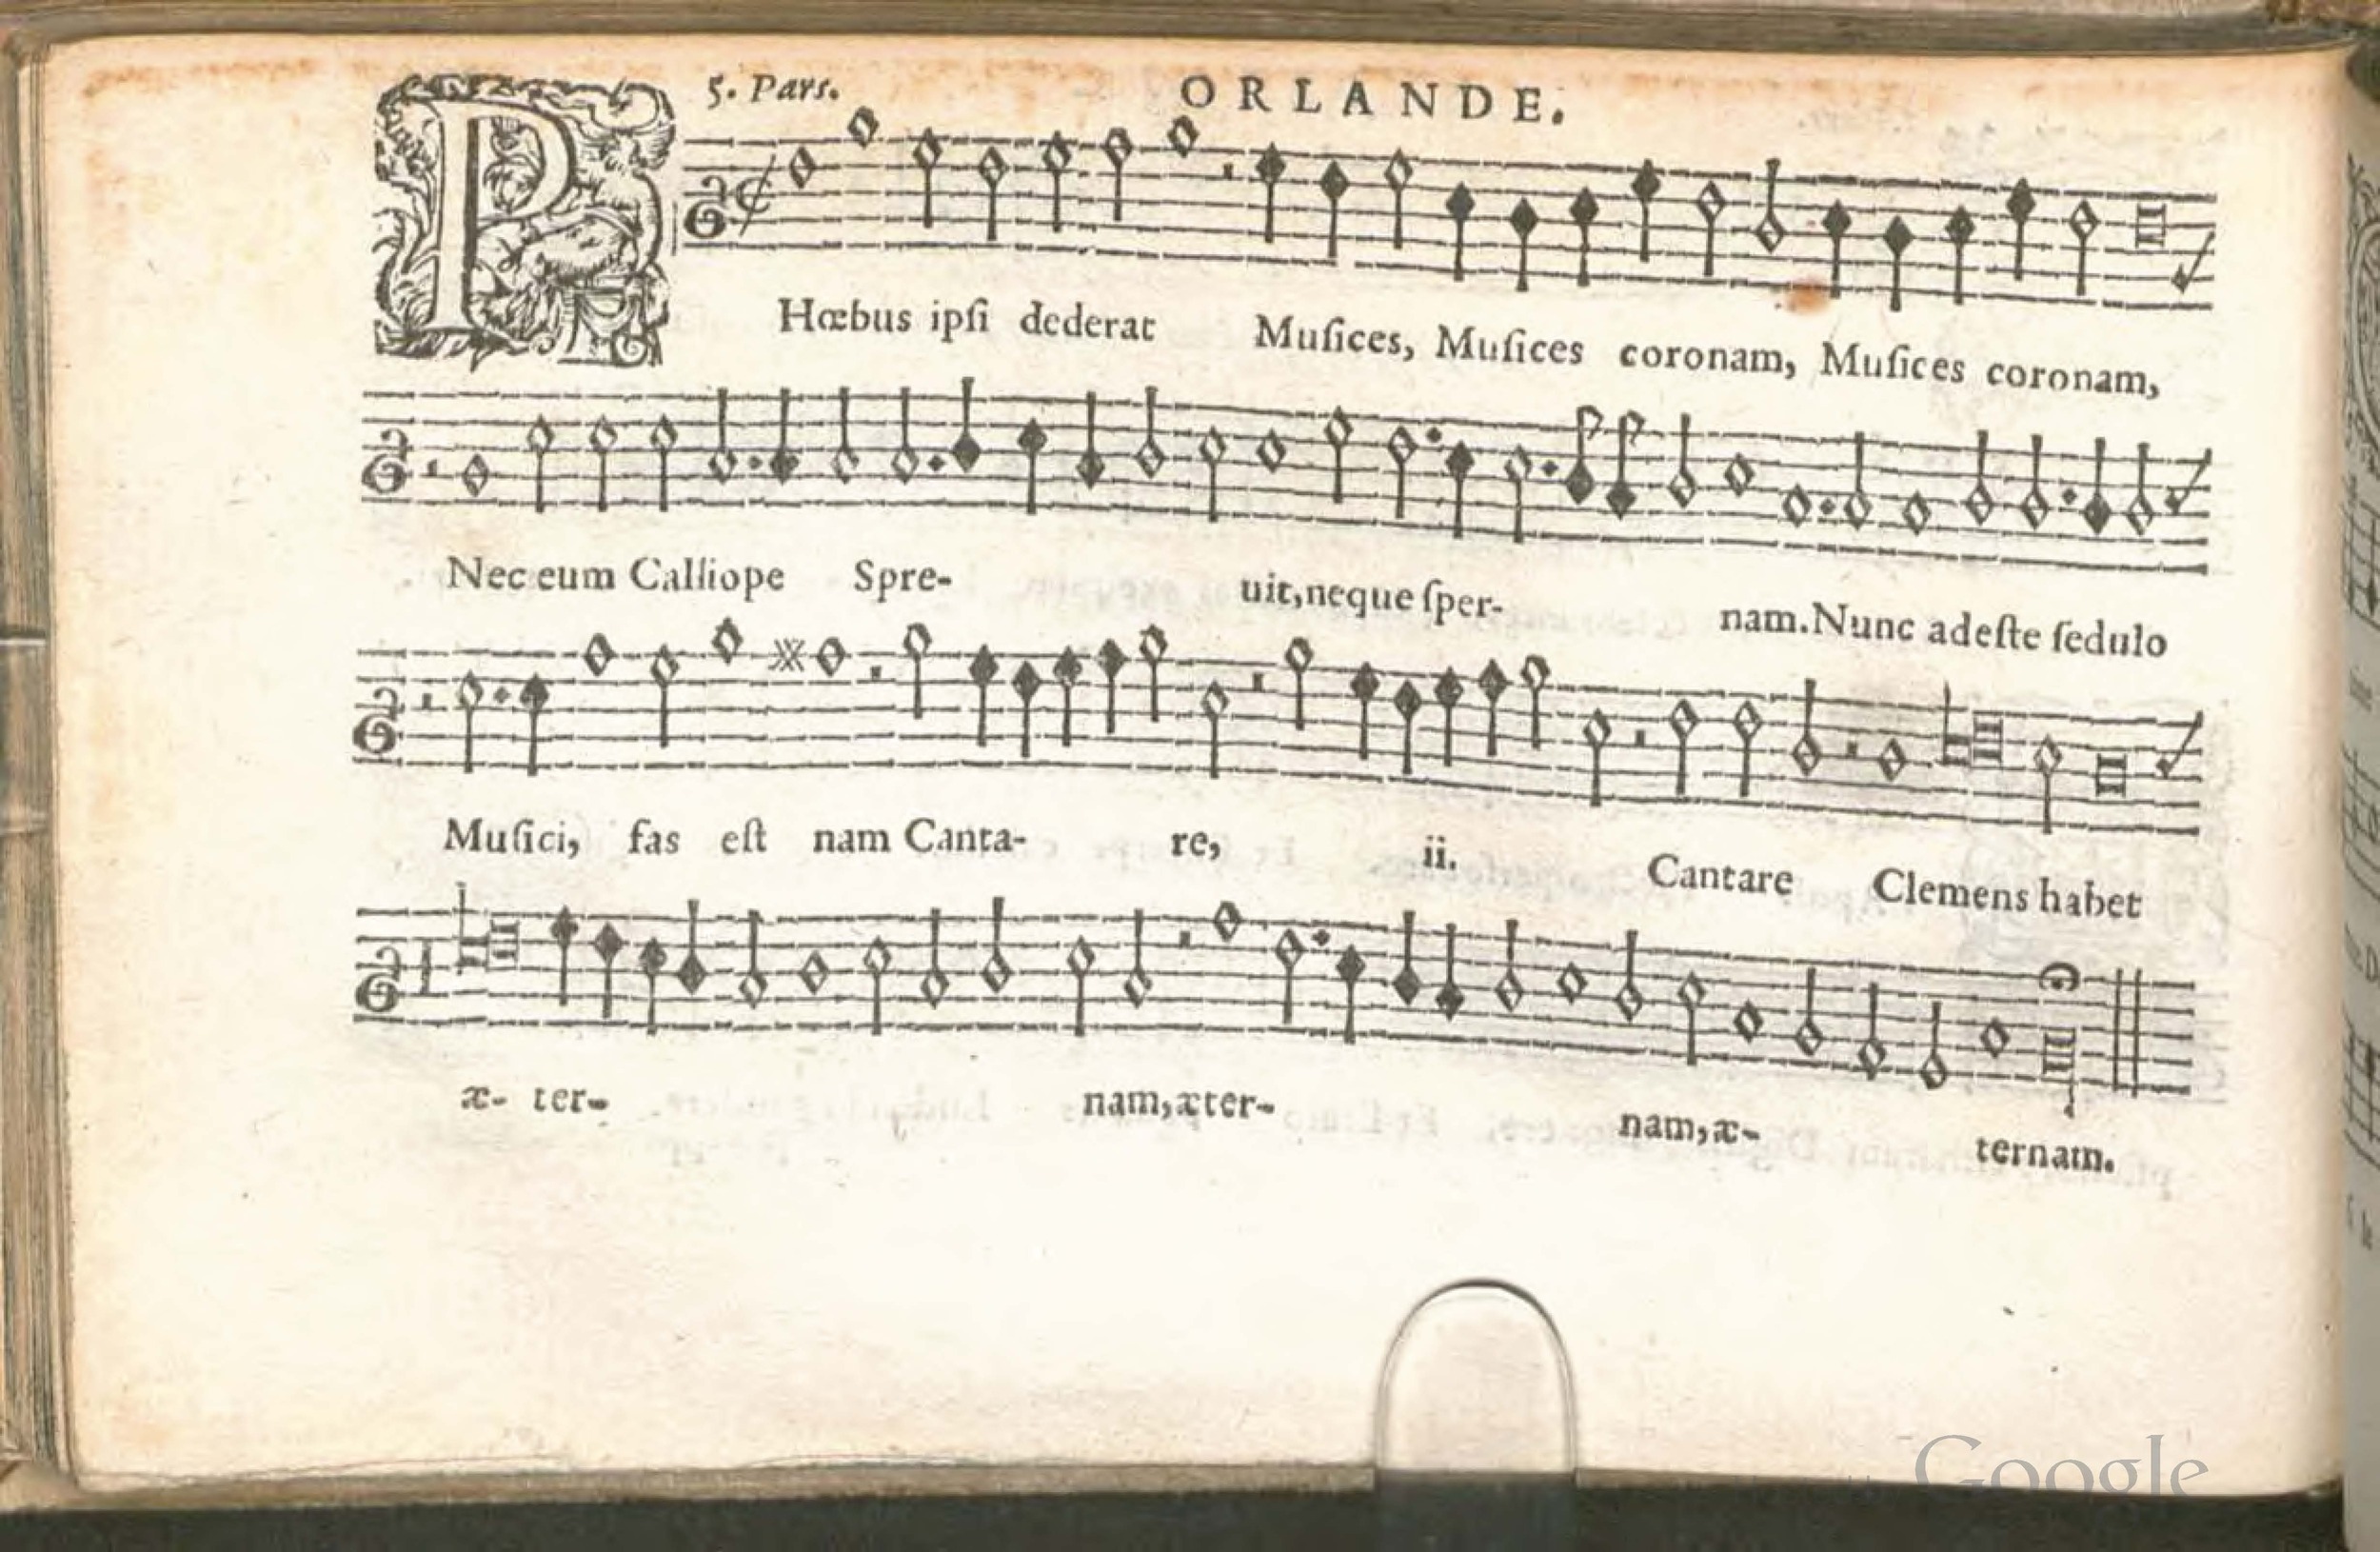 5. Pars. ORLANDE.
PHœbus ipſi dederat Muſices, Muſices coronam, Muſices coronam,
Nec eum Calliope Spre- uit,neque ſper- nam.Nunc adeſte ſedulo
Muſici, fas eſt nam Canta- re, ii. Cantare Clemens habet
æ- ter- nam,æter- nam,æ- ternam.
Google